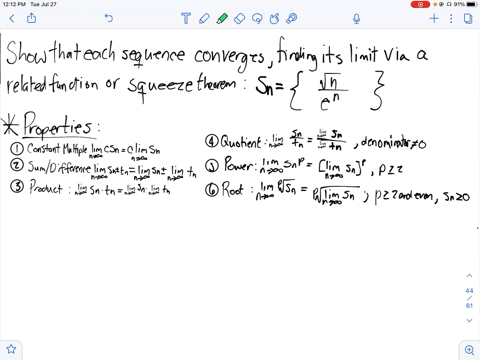 12:12 PM Tue Jul 27
91%
Show that each sequence converges, finding its limit via a
related function or squeeze theorem: Sn = { √n / eⁿ }
* Properties:
① Constant Multiple lim n→∞ CSn = C lim Sn
② Sum/Difference lim n→∞ Sn ± tn = lim n→∞ Sn ± lim n→∞ tn
③ Product: lim n→∞ Sn · tn = lim n→∞ Sn · lim n→∞ tn
④ Quotient: lim n→∞ Sn/tn = lim n→∞ Sn / lim n→∞ tn, denominator ≠ 0
⑤ Power: lim n→∞ Snᴾ = [lim n→∞ Sn]ᴾ, p≥2
⑥ Root: lim n→∞ ᴾ√Sn = ᴾ√lim n→∞ Sn; p≥2 and even, Sn≥0
44
/
61